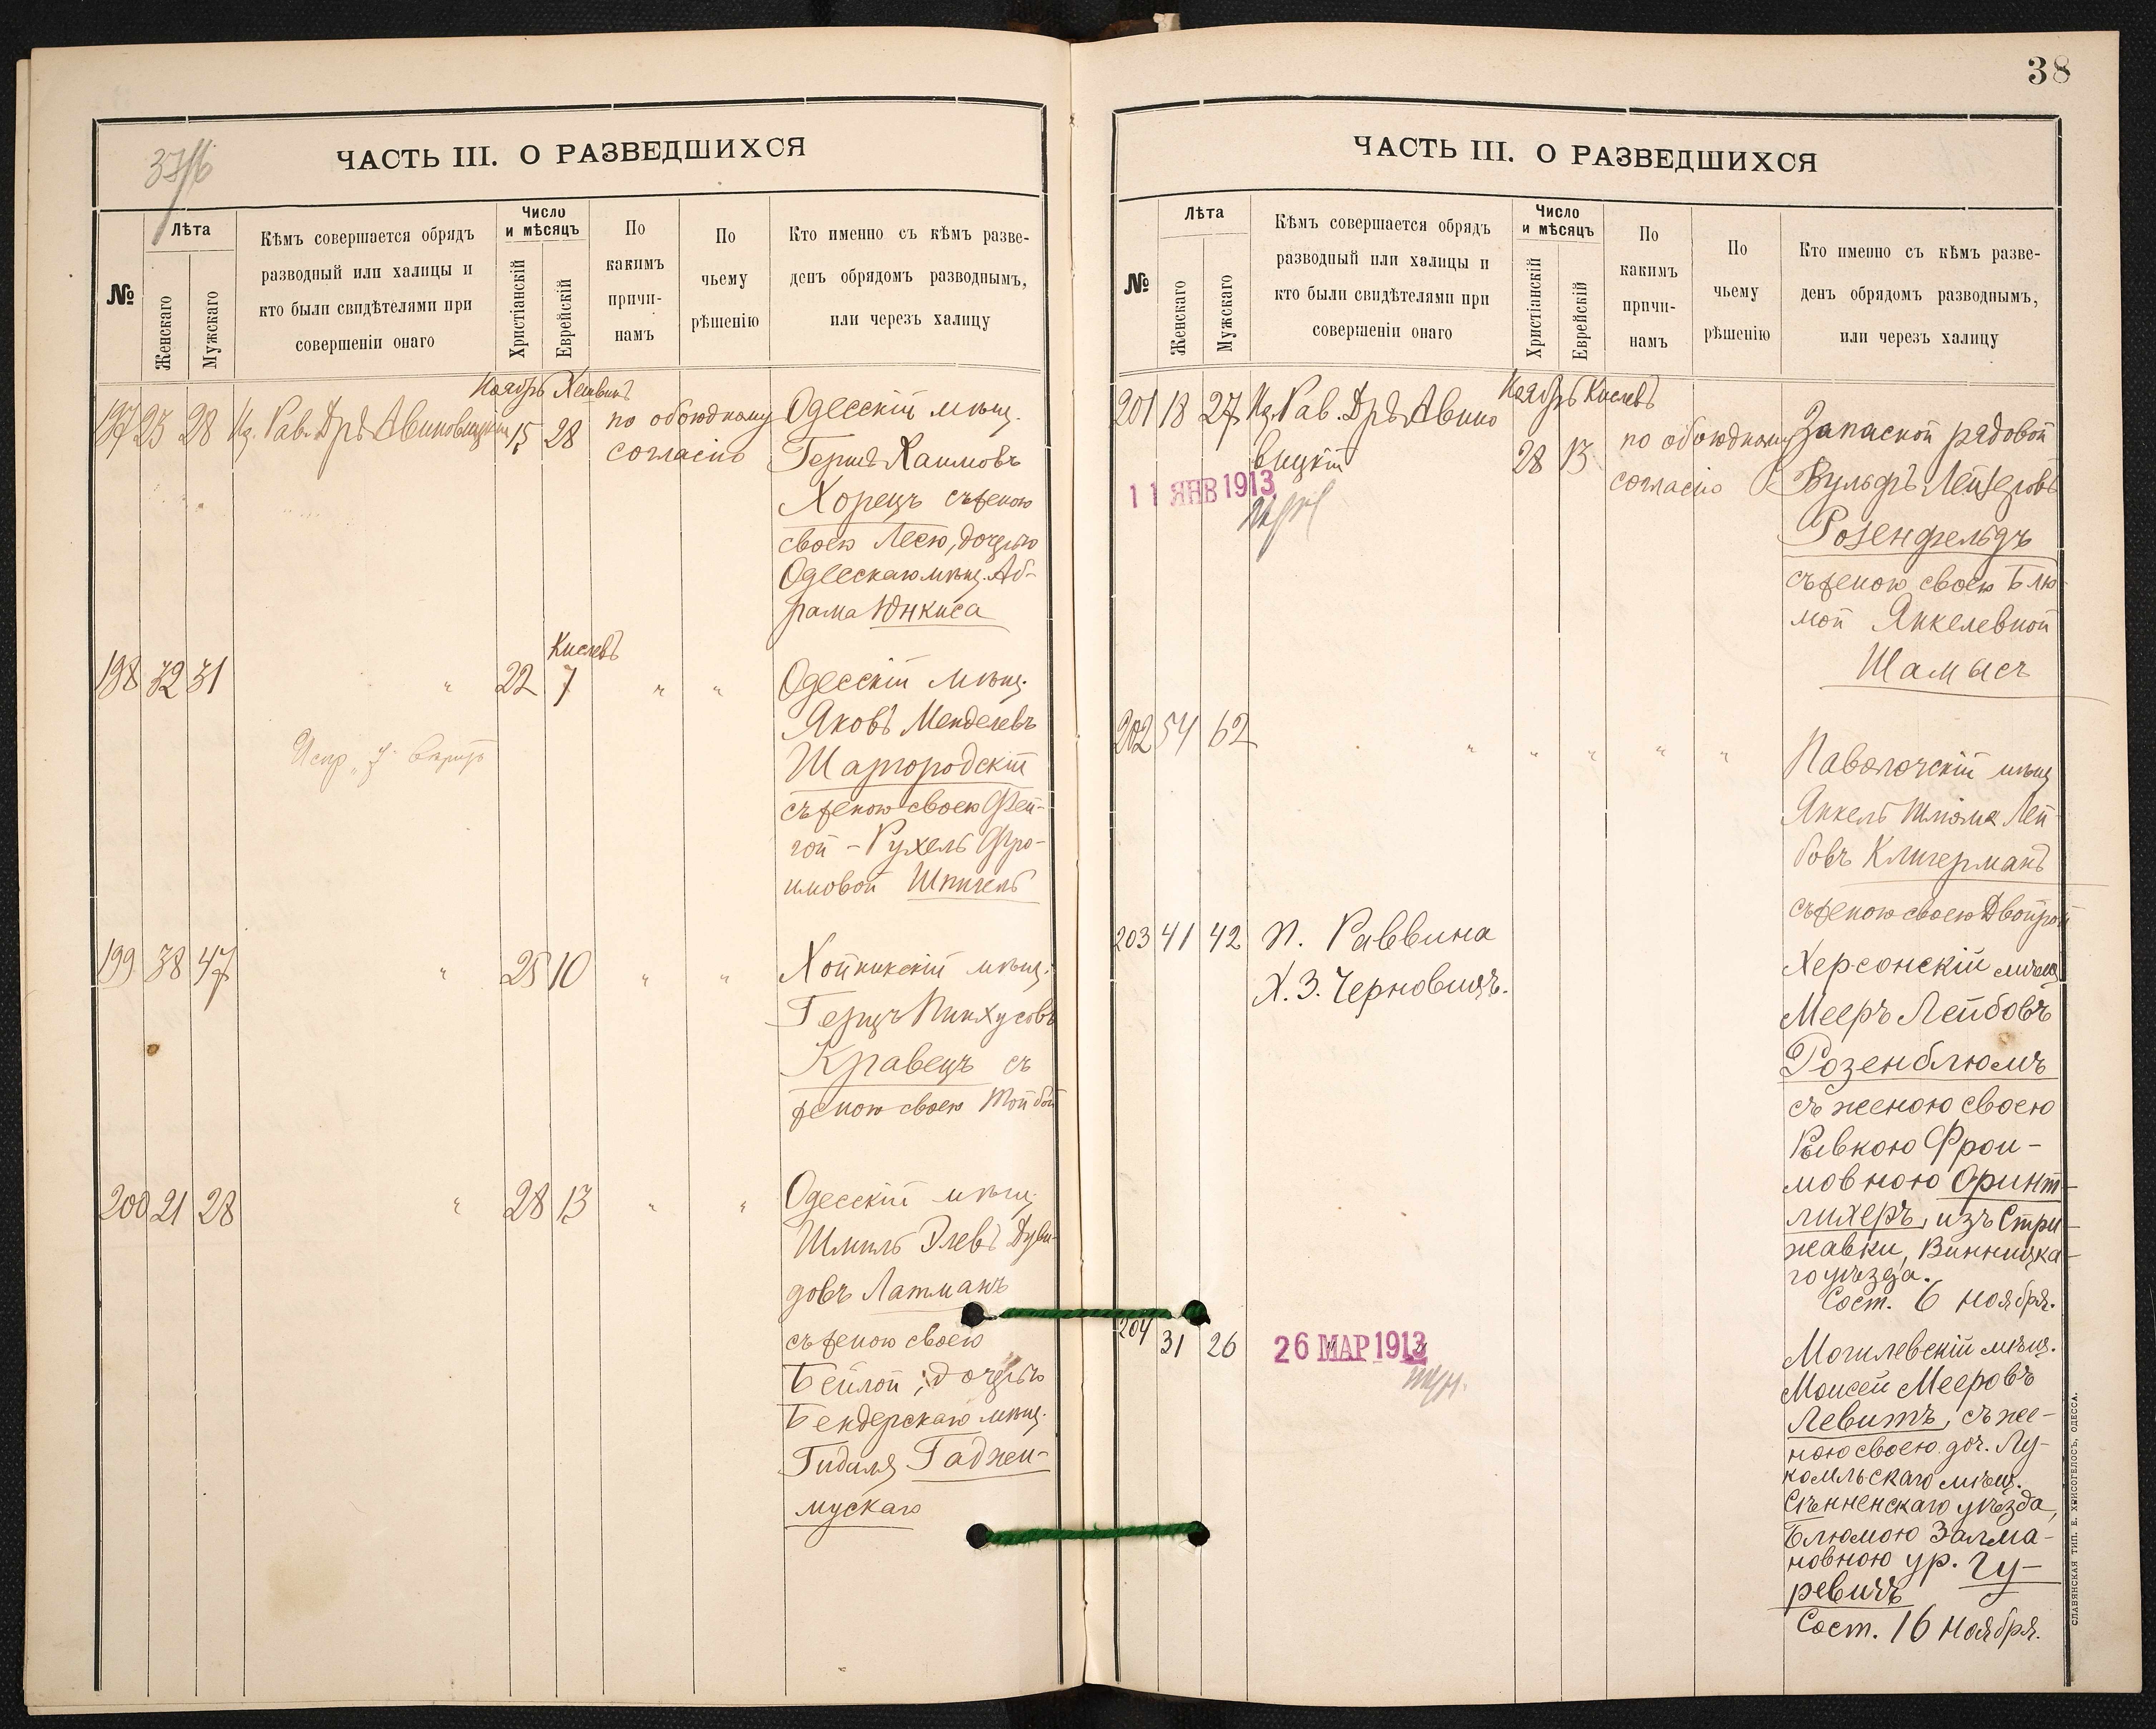 37/б
ЧАСТЬ III. О РАЗВЕДШИХСЯ
№
Лѣта
Женскаго
Мужскаго
Кѣмъ совершается обрядъ
разводный или халицы и
кто были свидѣтелями при
совершеніи онаго
Число
и мѣсяцъ
Христіанскій
Еврейскій
По
какимъ
причи-
намъ
По
чьему
рѣшенію
Кто именно съ кѣмъ разве-
денъ обрядомъ разводнымъ,
или черезъ халицу
Ноябрь Хешванъ
197 23 28 Из. Рав. Дръ Авиновицкій 15 28 по обоюдному Одесскій мѣщ.
согласію Гершъ Хаимовъ
Хорецъ съ женою
своею Лесю, дочерью
Одесскаго мѣщ. Аб-
рама Юнкиса
Кислевъ
198 32 31 " 22 7 " " Одесскій мѣщ.
Яковъ Менделевъ
Испр. „7"
Шаргородскій
съ женою своею Фей-
гой - Рухель Фро-
имовой Шпигель
199 38 47 " 25 10 " " Хойникскій мѣщ.
Герцъ Пинхусовъ
Кравецъ съ
женою своею Тойбой
200 21 28 " 28 13 " " Одесскій мѣщ.
Шмиль Элевъ Дуви-
довъ Латманъ
съ женою своею
Бейлой; дочерью
Бендерскаго мѣщ.
Гидаля Гаджи-
мускаго
38
ЧАСТЬ III. О РАЗВЕДШИХСЯ
№
Лѣта
Женскаго
Мужскаго
Кѣмъ совершается обрядъ
разводный или халицы и
кто были свидѣтелями при
совершеніи онаго
Число
и мѣсяцъ
Христіанскій
Еврейскій
По
какимъ
причи-
намъ
По
чьему
рѣшенію
Кто именно съ кѣмъ разве-
денъ обрядомъ разводнымъ,
или черезъ халицу
Ноябрь Кислевъ
201 18 27 Из. Рав. Дръ Авино
вицкій 28 13 по обоюдному Запасной рядовой
согласію Вульфъ Лейзеровъ
11 ЯНВ 1913
Розенфельдъ
съ женою своею Блю
мой Янкелевной
Шамысъ
202 54 62 " " " " " Паволочскій мѣщ
Янкель Шлома Лей
бовъ Клигерманъ
съ женою своею Двойрой
203 41 42 П. Раввина
Х. З. Черновицъ.
Херсонскій мѣщ
Мееръ Лейбовъ
Розенблюмъ
съ женою своею
Рывкою Фрои-
мовною Оринт-
лихеръ, изъ Стри-
жавки, Винницка-
го уѣзда.
Сост. 6 ноября.
204 31 26 " "
26 МАР 1913
Могилевскій мѣщ.
Моисей Мееровъ
Левитъ, съ же-
ною своею доч. Лу-
комльскаго мѣщ.
Сѣнненскаго уѣзда,
Блюмою Залма-
новною ур. Гу-
ревичъ
Сост. 16 ноября.
СЛАВЯНСКАЯ ТИП. Е. ХРИСОГЕЛОСЪ, ОДЕССА.